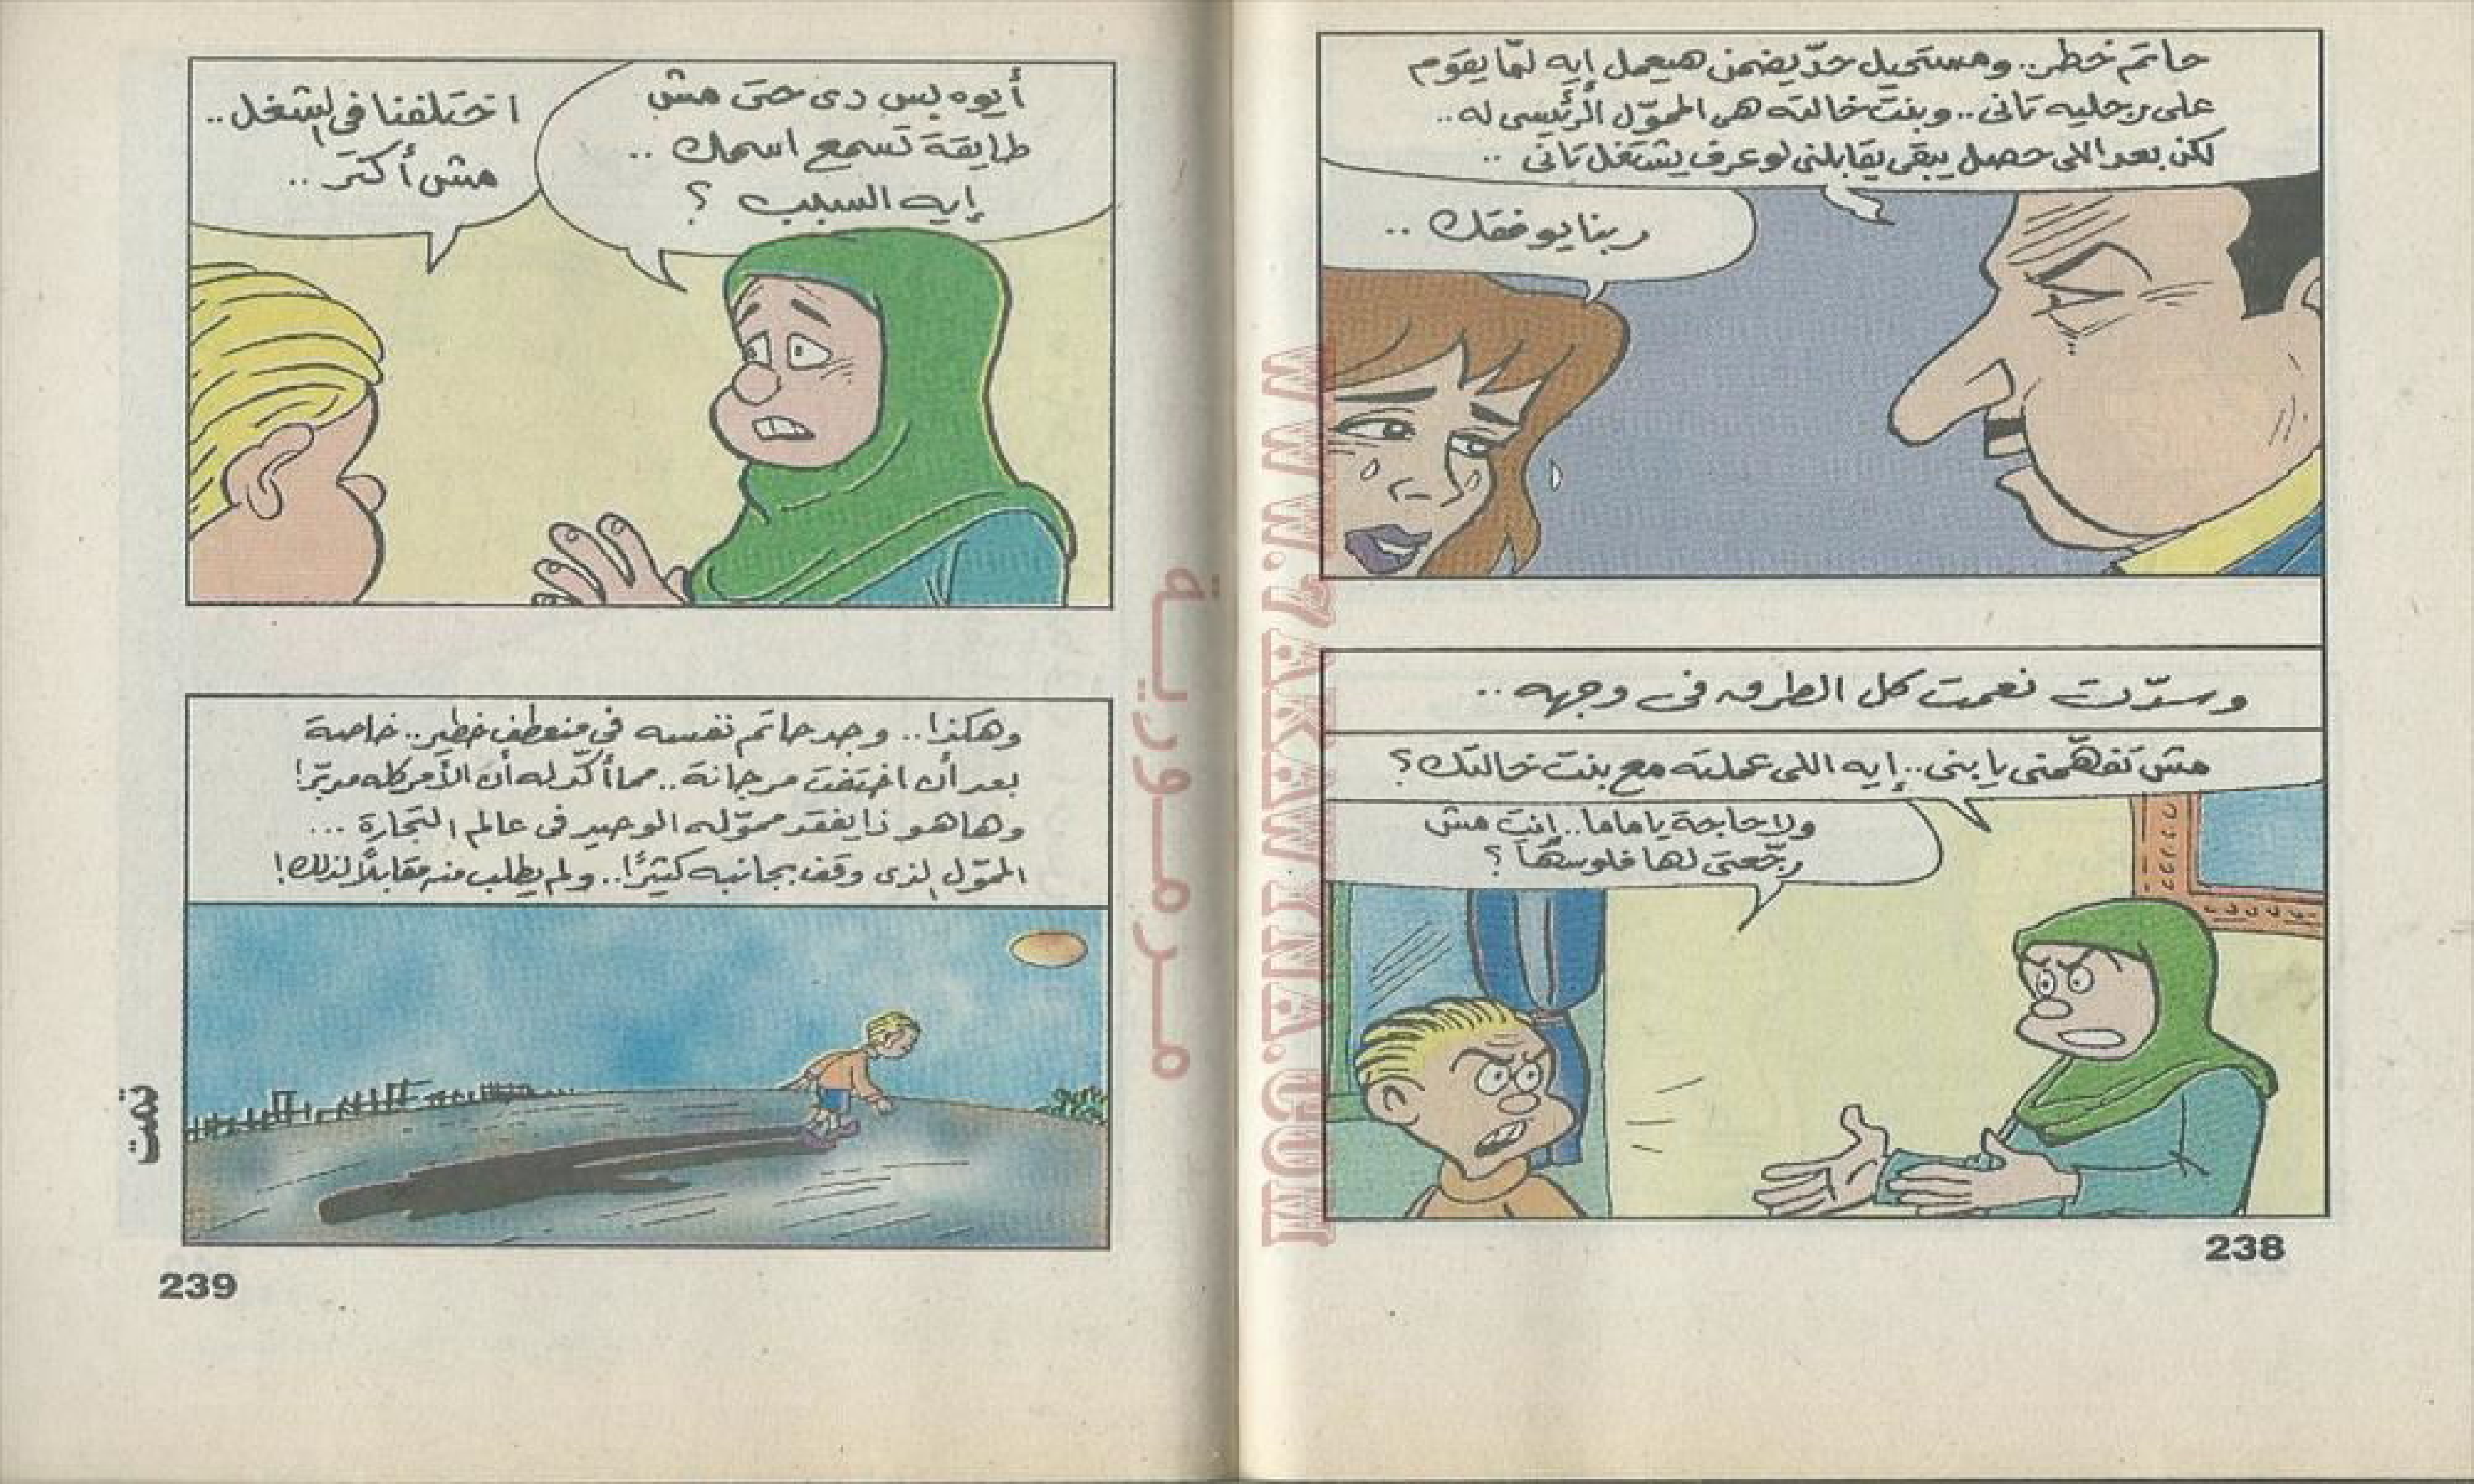 حاتم خطر.. ومستحيل حدّ يضمن هيعمل إيه لمّا يقوم
على رجليه تانى.. وبنت خالته هى المموّل الرئيسى له..
لكن بعد اللى حصل يبقى يقابلنى لو عرف يشتغل تانى ..
ربنا يوفقك ..
وسدّت نعمت كل الطرق فى وجهه ..
مش تفهّمنى يا بنى.. إيه اللى عملته مع بنت خالتك؟
ولا حاجة يا ماما.. إنتِ مش
رجّعتى لها فلوسها؟
238
أيوه بس دى حتى مش
طايقة تسمع اسمك ..
إيه السبب ؟
اختلفنا فى الشغل..
مش أكتر ..
وهكذا.. وجد حاتم نفسه فى منعطف خطير.. خاصة
بعد أن اختفت مرجانة.. مما أكّد له أن الأمر كله مدبّر!
وها هو ذا يفقد مموّله الوحيد فى عالم التجارة ...
المموّل الذى وقف بجانبه كثيرًا.. ولم يطلب منه مقابلًا لذلك!
تمت
239
مرمورية
WWW.7AKAWINA.COM